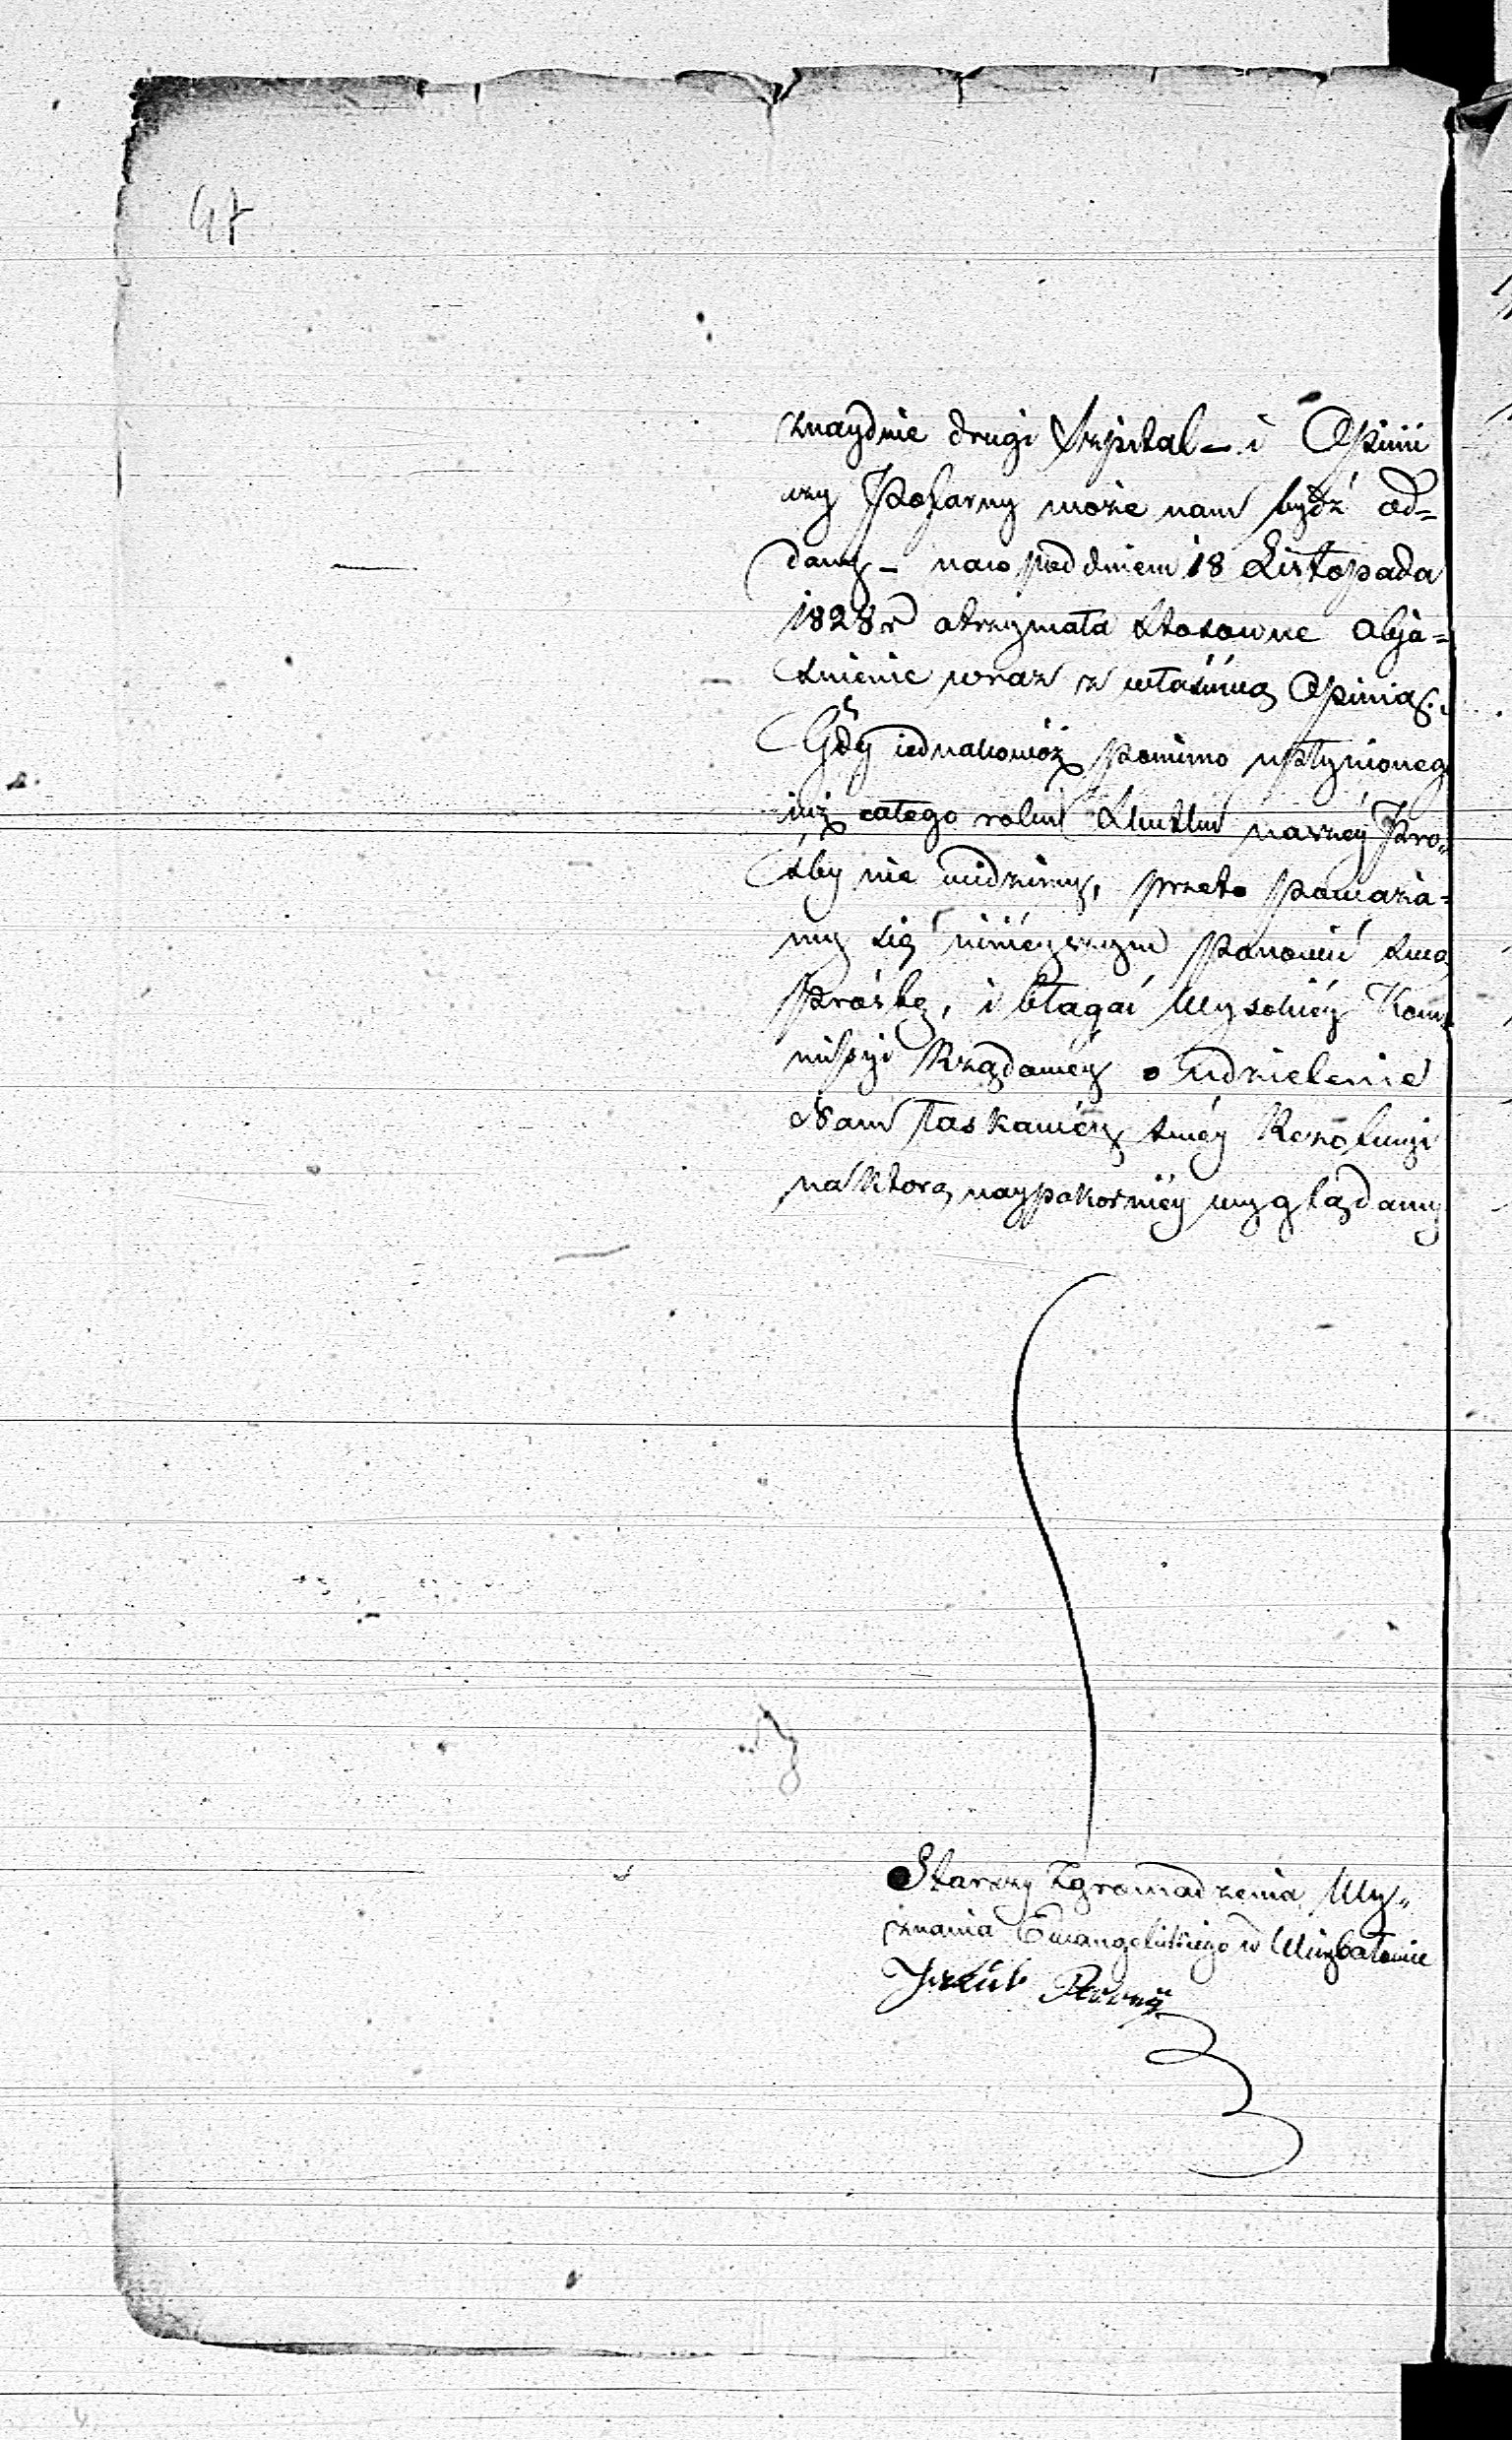 47
znaydnie drugi Szpital – i Opinii
czy Pofarny może nam bydź od=
dany – na co pod dniem 18 Listopada
1828 r otrzymała stosowne obja=
śnienie wraz z właśćiwą Opinią.
Gdy iednakowóż pomimo upłynioneg
iuż całego roku Skutku naszéy Pro„
śby nie widziemy, przeto poważa=
my się ninieyszym ponowić swą
prośbę, i błagać Wysokiéy Kom„
missyi Rządowéy o udzielenie
Nam łaskawéy swéy Rezolucyi
na ktorą naypokorniéy wyglądamy
Starszy Zgromadzenia Wy„
znania Ewangelickiego w Wierzbołowie
Jakub